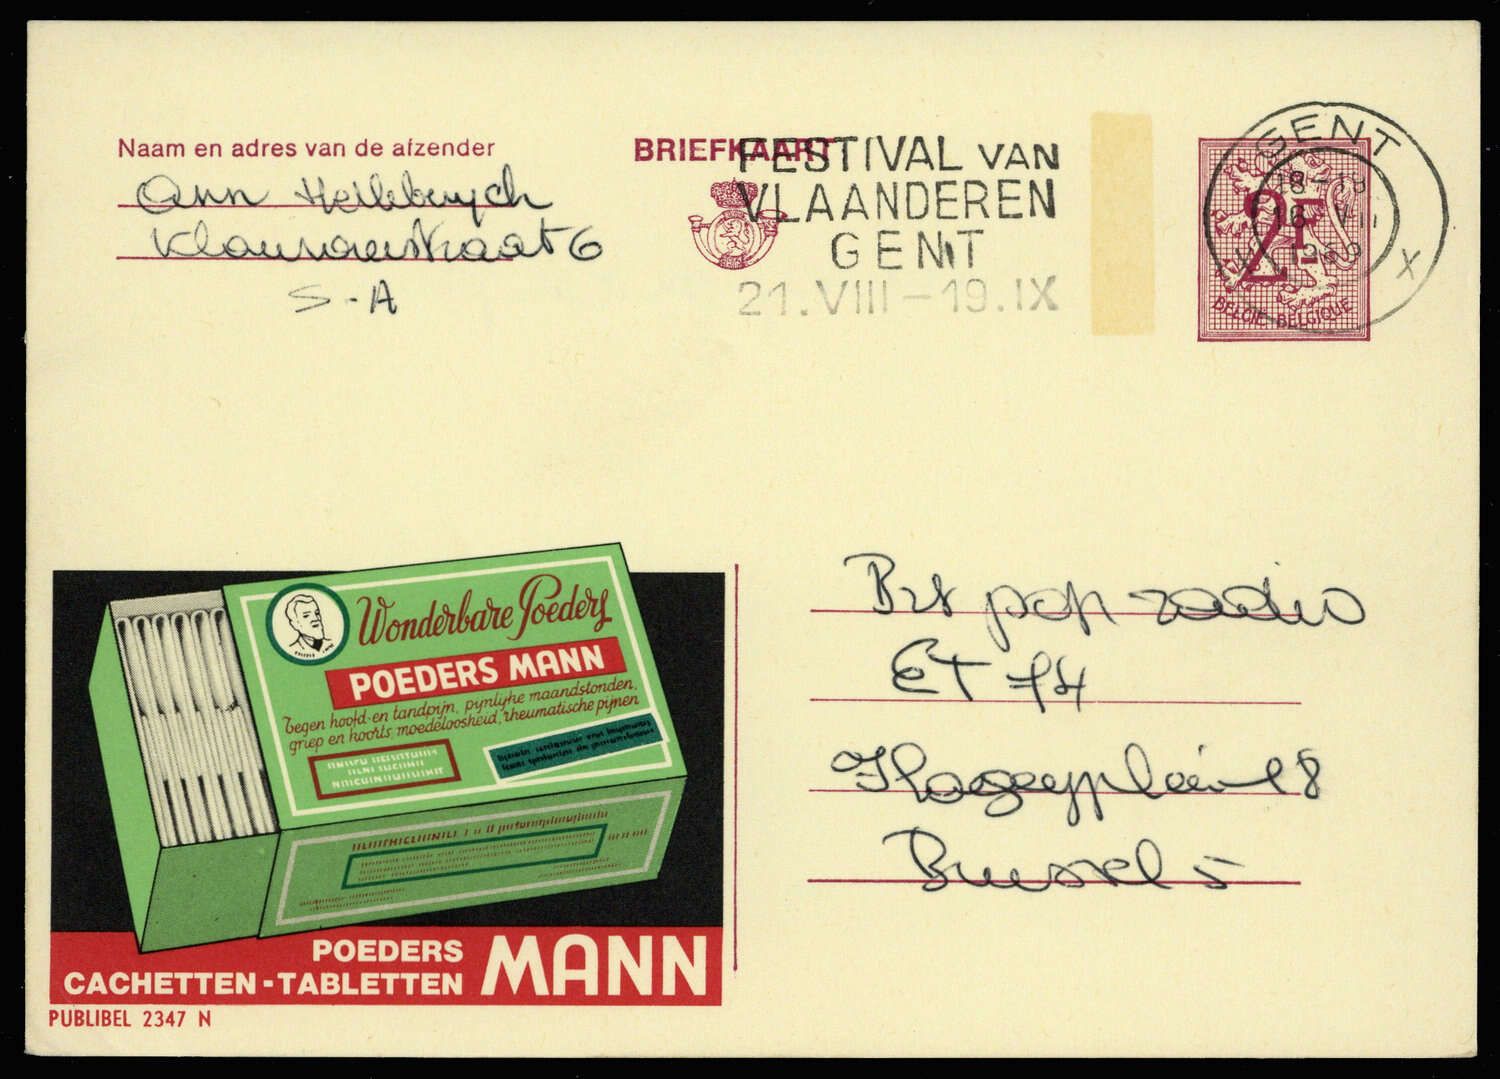 Naam en adres van de afzender
BRIEFKAART
FESTIVAL VAN
VLAANDEREN
GENT
21.VIII - 19.IX
GENT
18-19
16 VII
X
2F
BELGIE-BELGIQUE
Ann
6
S-A
Wonderbare Poeders
POEDERS MANN
Tegen hoofd-en tandpijn, pijnlijke maandstonden,
griep en koorts, moedeloosheid, rheumatische pijnen
POEDERS
CACHETTEN-TABLETTEN MANN
PUBLIBEL 2347 N
Brt pop radio
ET 14
Flageyplein 18
Brussel 5